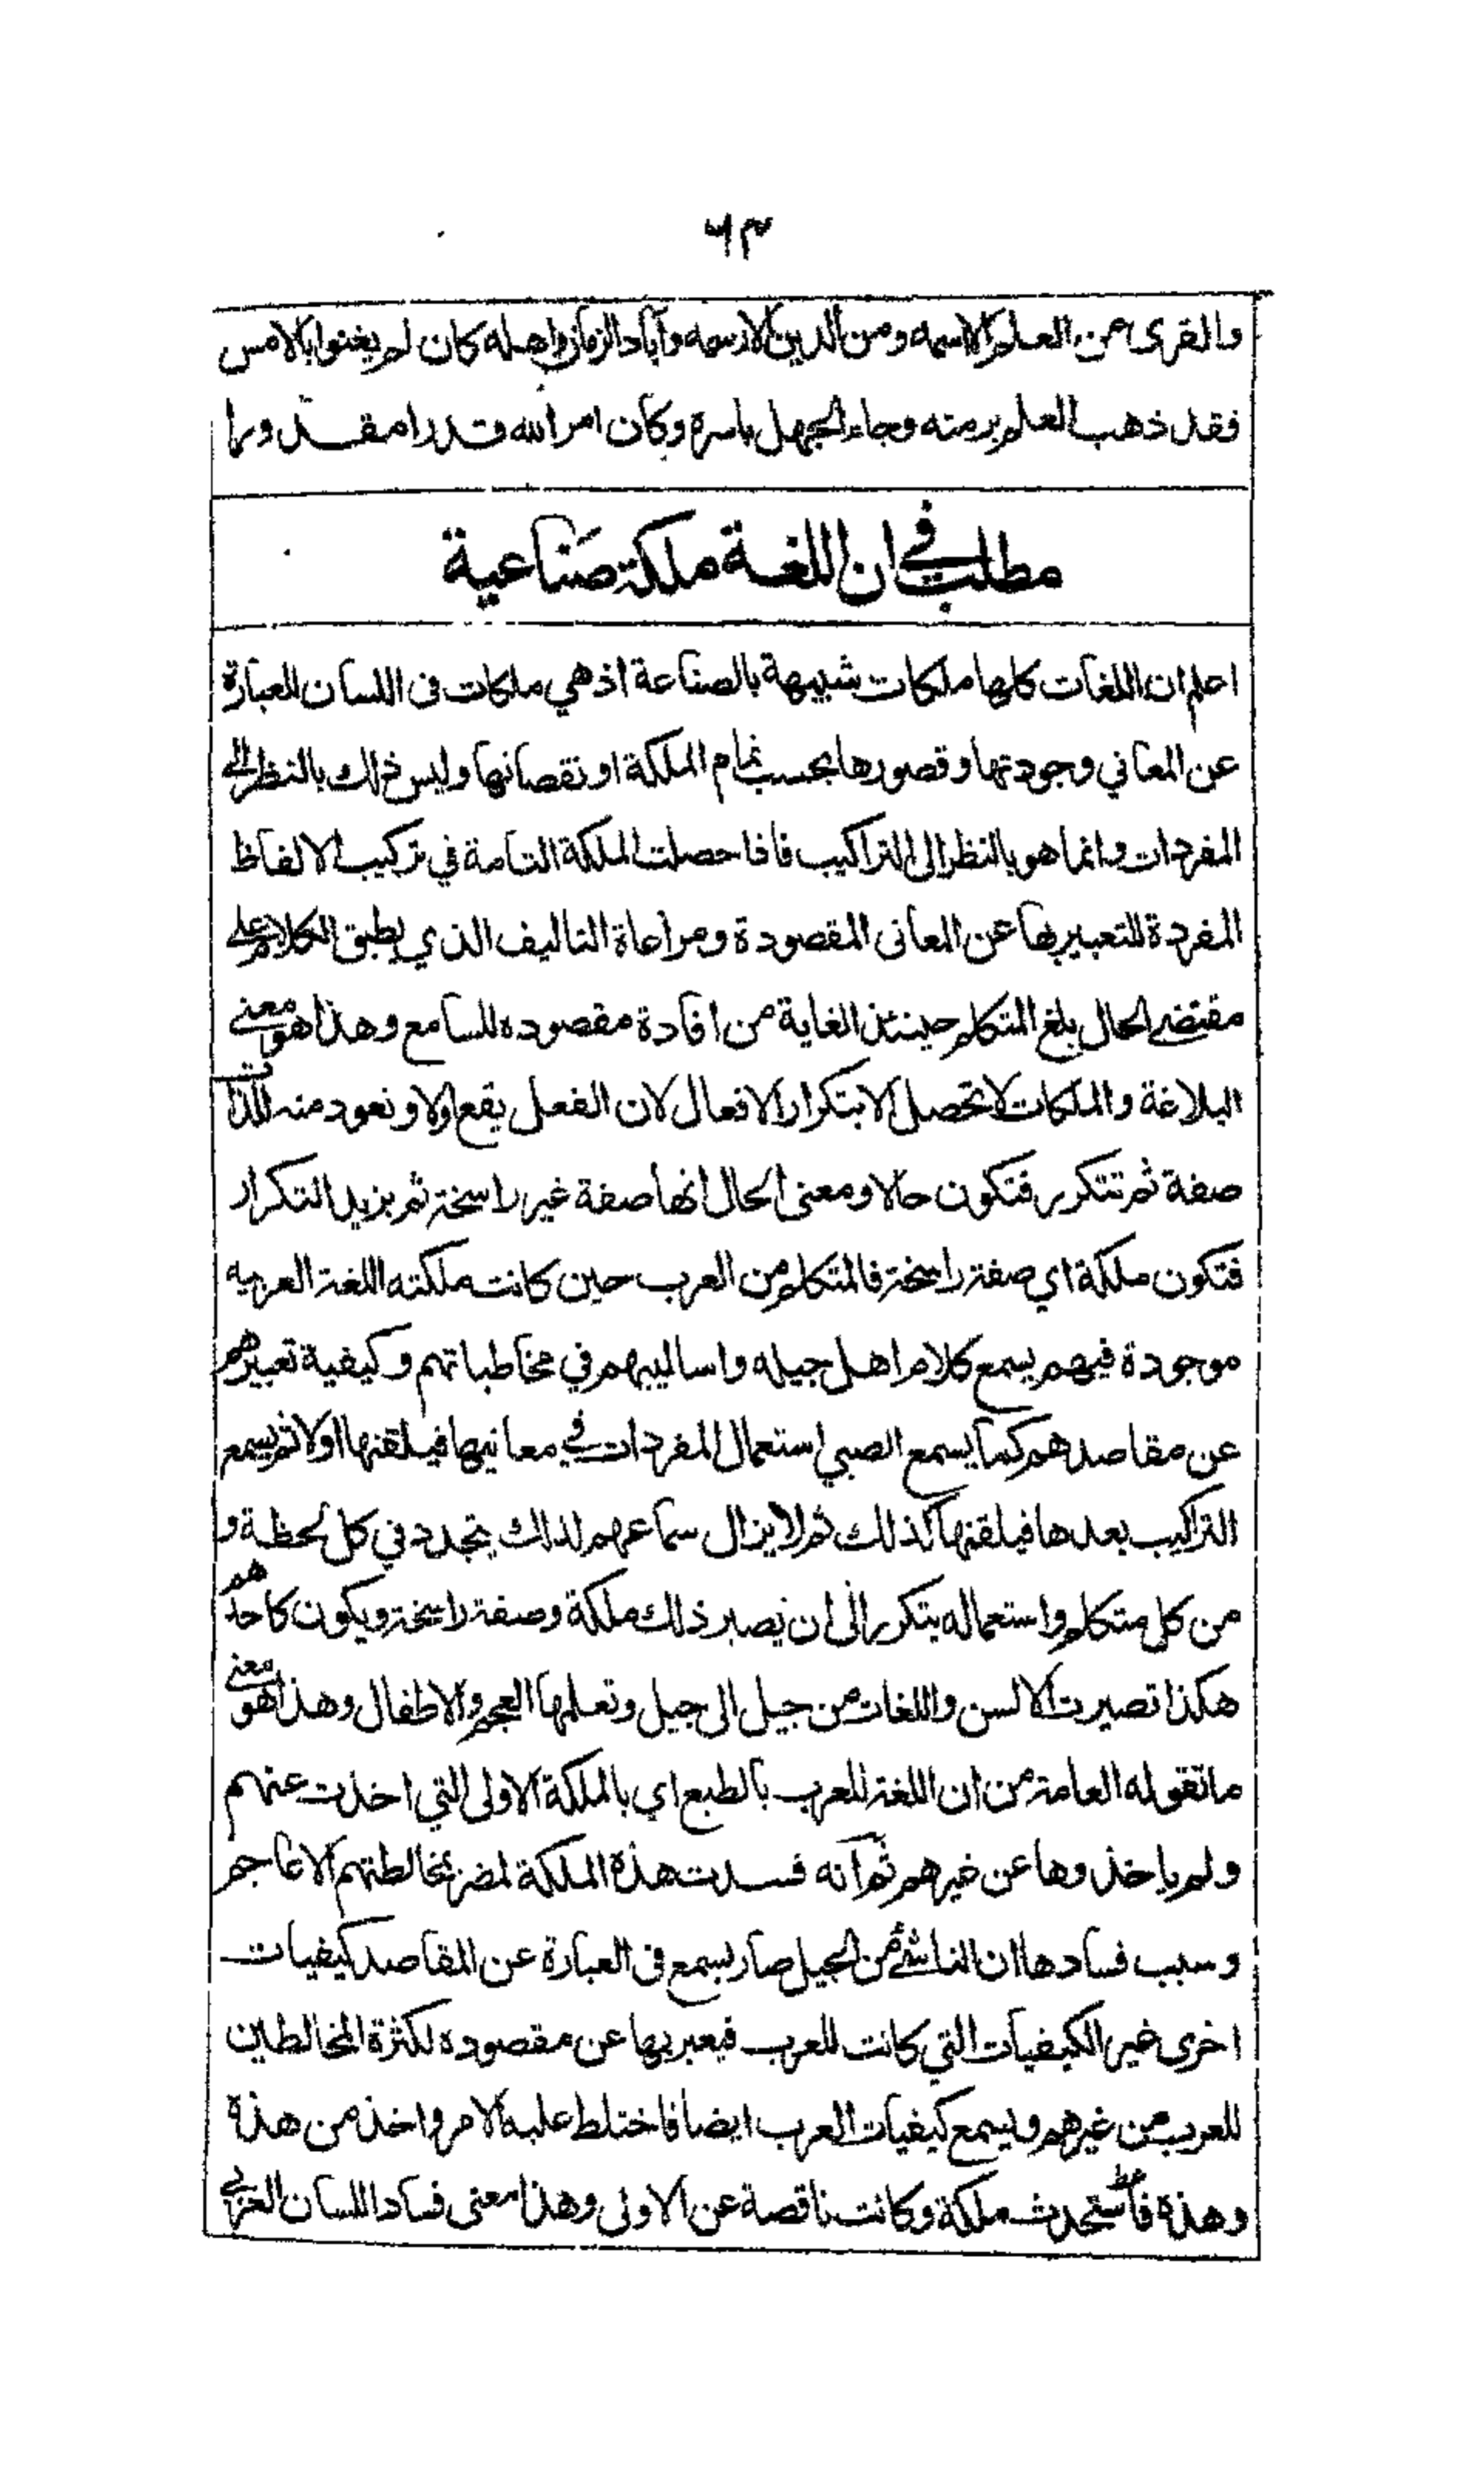 ٦٣
والقرى من العلم الا اسمه ومن الدين الا رسمه وأباد الزمان اهله كان لم يغنوا بالامس
فقد ذهب العلم برمته وجاء الجهل باسره وكان امر الله قدرا مقدورا
مطلب في ان اللغة ملكة صناعية
اعلم ان اللغات كلها ملكات شبيهة بالصناعة اذ هي ملكات فى اللسان للعبارة
عن المعاني وجودتها وقصورها بحسب تمام الملكة او نقصانها وليس ذلك بالنظر الى
المفردات وانما هو بالنظر الى التراكيب فاذا حصلت الملكة التامة في تركيب الالفاظ
المفردة للتعبير بها عن المعانى المقصودة ومراعاة التاليف الذي يطبق الكلام على
مقتضى الحال بلغ المتكلم حينئذ الغاية من افادة مقصوده للسامع وهذا هو معنى
البلاغة والملكات لا تحصل الا بتكرار الافعال لان الفعل يقع اولا وتعود منه للذات
صفة ثم تتكرر فتكون حالا ومعنى الحال انها صفة غير راسخة ثم يزيد التكرار
فتكون ملكة اي صفة راسخة فالمتكلم من العرب حين كانت ملكته اللغة العربيه
موجودة فيهم يسمع كلام اهل جيله واساليبهم في مخاطباتهم وكيفية تعبيرهم
عن مقاصدهم كما يسمع الصبي استعمال المفردات في معانيها فيلقنها اولا ثم يسمع
التراكيب بعدها فيلقنها كذلك ثم لا يزال سماعهم لذلك يتجدد في كل لحظة و
من كل متكلم واستعماله يتكرر الى ان يصير ذلك ملكة وصفة راسخة ويكون كاحدهم
هكذا تصيرت الالسن واللغات من جيل الى جيل وتعلمها العجم والاطفال وهذا هو معنى
ما تقوله العامة من ان اللغة للعرب بالطبع اي بالملكة الاولى التي اخذت عنهم
ولم ياخذوها عن غيرهم ثم انه فسدت هذه الملكة لمضر بمخالطتهم الاعاجم
وسبب فسادها ان الناشئ من الجيل صار يسمع فى العبارة عن المقاصد كيفيات
اخرى غير الكيفيات التي كانت للعرب فيعبر بها عن مقصوده لكثرة المخالطين
للعرب من غيرهم ويسمع كيفيات العرب ايضا فاختلط عليه الامر واخذ من هذه
وهذه فاستحدث ملكة وكانت ناقصة عن الاولى وهذا معنى فساد اللسان العربي